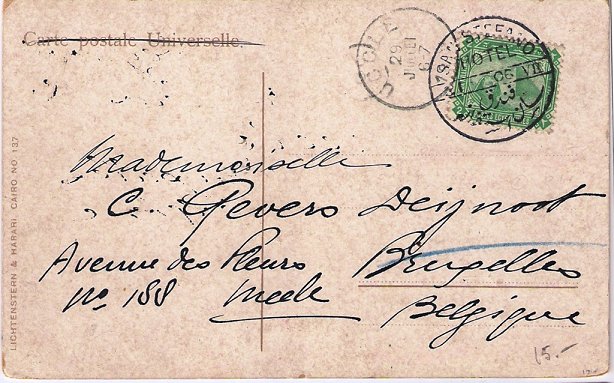 Carte postale Universelle.
UCCLE
29
JUILLET
6-7
SAN STEFANO
HOTEL
06
VII
Mademoiselle
C. Gevers Deijnoot
Avenue des Fleurs Bruxelles
No 188
Belgique
15.-
LICHTENSTERN & HARARI, CAIRO NO. 137